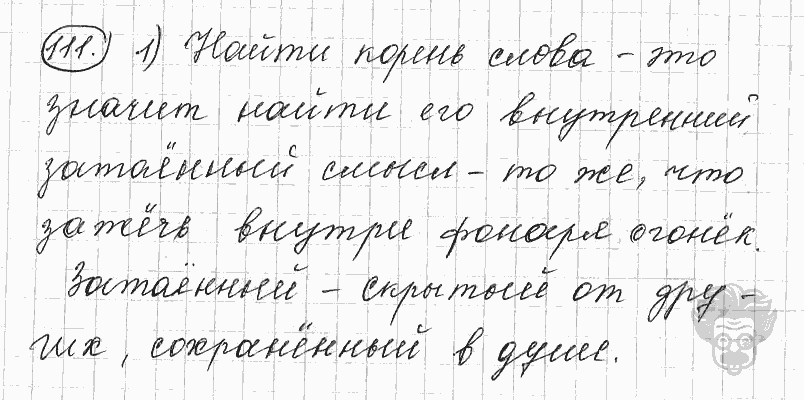 111. 1) Найти корень слова – это
значит найти его внутренний
затаённый смысл – то же, что
зажечь внутри фонаря огонёк.
Затаённый – скрытый от дру-
гих, сохранённый в душе.